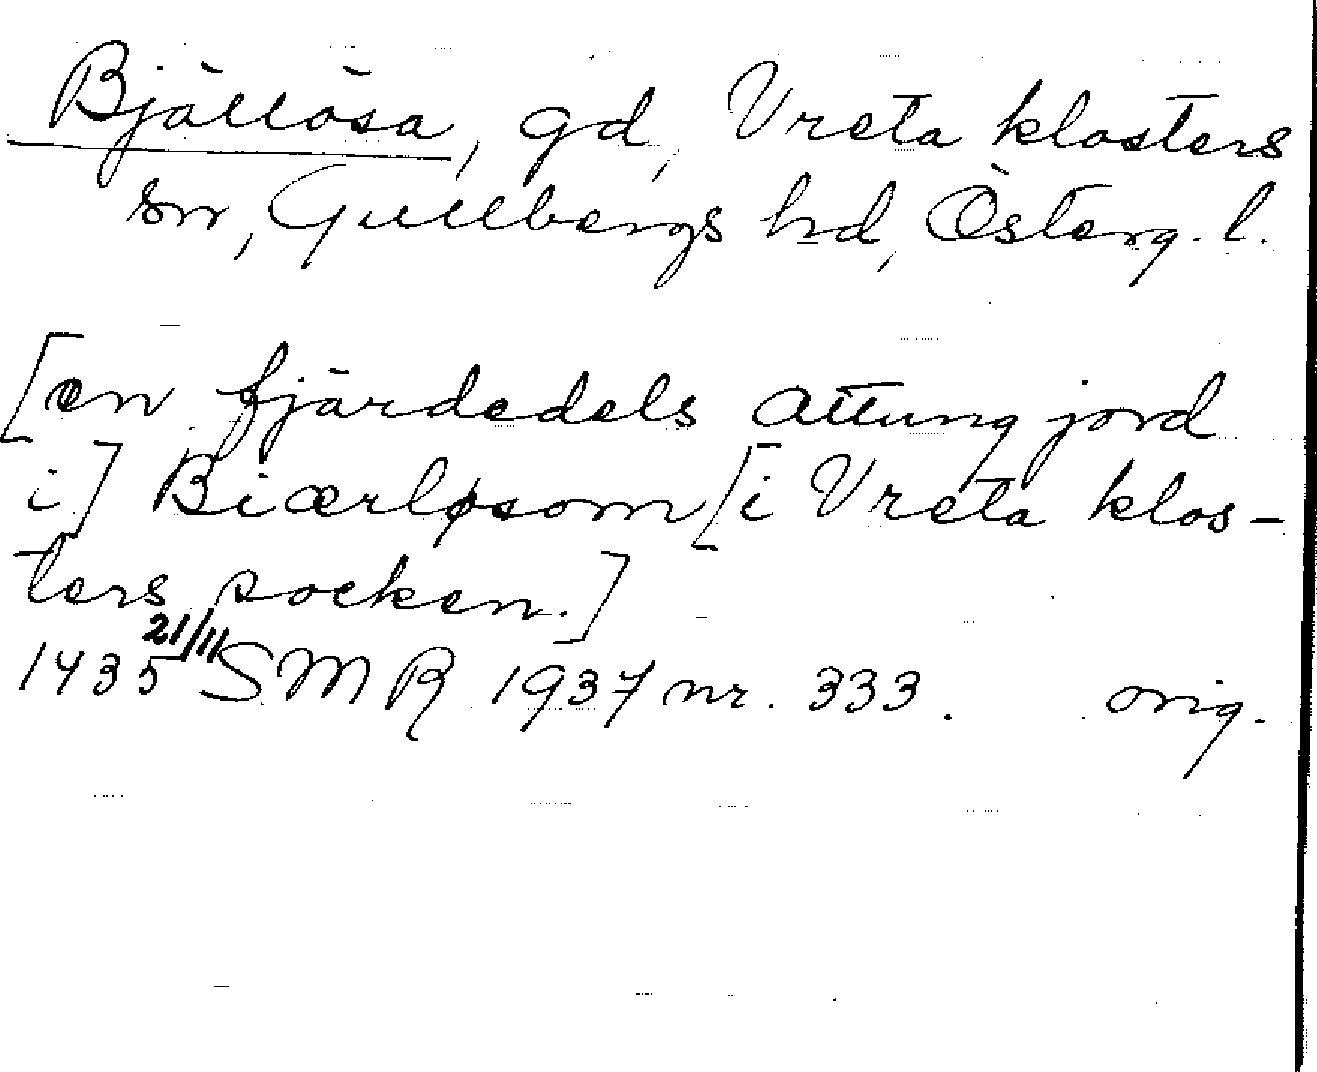 Bjällösa, gd, Vreta klosters
sn, Gullbergs hd, Österg. l.
[en fjärdedels attung jord
i] Biærløsom [i Vreta klos-
ters socken.]
1435 21/11 SMR 1937 nr. 333. orig.